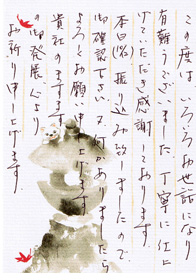 この度は、いろいろお世話になり
有難うございました。丁寧に仕上
げていただき感謝しております
本日(名)振り込み致しましたので
御確認下さい。又何かありましたら
よろしくお願い申し上げます
貴社のますます
の御発展心より
お祈り申し上げます